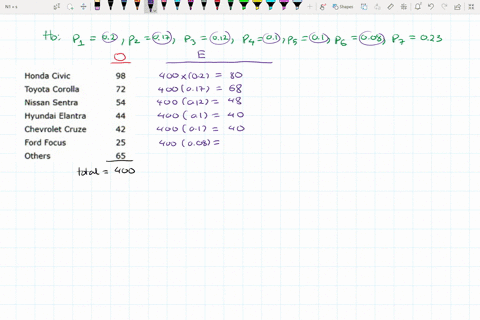 Ho: P1 = 0.2, P2 = 0.17, P3 = 0.12, P4 = 0.1, P5 = 0.1, P6 = 0.08, P7 = 0.23
O E
Honda Civic 98 400 x (0.2) = 80
Toyota Corolla 72 400 (0.17) = 68
Nissan Sentra 54 400 (0.12) = 48
Hyundai Elantra 44 400 (0.1) = 40
Chevrolet Cruze 42 400 (0.1) = 40
Ford Focus 25 400 (0.08) =
Others 65
total = 400